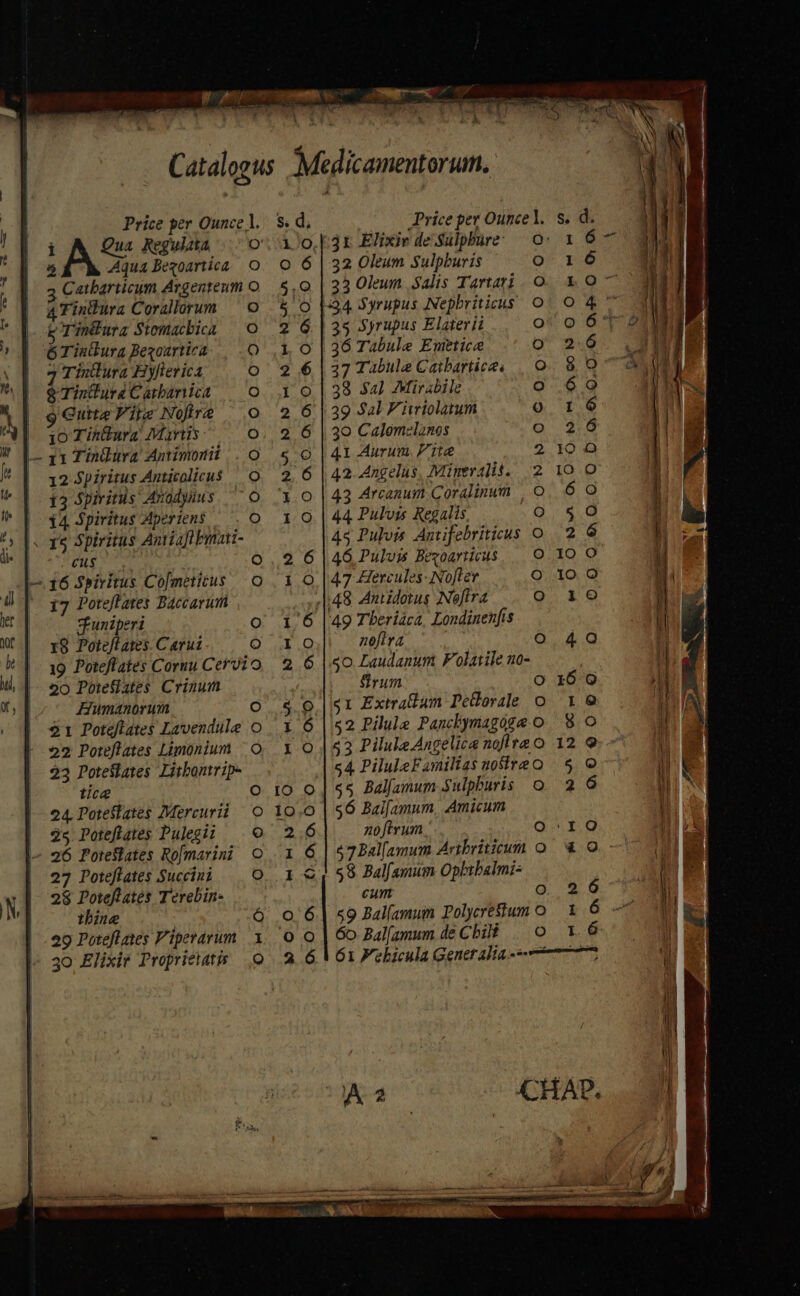 Catalogus Medicamentorum.
Price per Ounce l. s. d.
1 AQua Regulata 0 1 0
2 Aqua Bezoartica 0 0 6
3 Catharticum Argenteum 0 5 0
4 Tinctura Corallorum 0 5 0
5 Tinctura Stomachica 0 2 6
6 Tinctura Bezoartica 0 1 0
7 Tinctura Hysterica 0 2 6
8 Tinctura Cathartica 0 1 0
9 Guttæ Vitæ Nostræ 0 2 6
10 Tinctura Martis 0 2 6
11 Tinctura Antimonii 0 5 0
12 Spiritus Anticolicus 0 2 6
13 Spiritus Anodynus 0 1 0
14 Spiritus Aperiens 0 1 0
15 Spiritus Antiasthmati-
cus 0 2 6
16 Spiritus Cosmeticus 0 1 0
17 Potestates Baccarum
Juniperi 0 1 6
18 Potestates Carui 0 1 0
19 Potestates Cornu Cervi 0 2 6
20 Potestates Crinum
Humanorum 0 5 0
21 Potestates Lavendulæ 0 1 6
22 Potestates Limonium 0 1 0
23 Potestates Lithontrip-
ticæ 0 10 0
24 Potestates Mercurii 0 10 0
25 Potestates Pulegii 0 2 6
26 Potestates Rosmarini 0 1 6
27 Potestates Succini 0 1 6
28 Potestates Terebin-
thinæ 0 0 6
29 Potestates Viperarum 1 0 0
30 Elixir Proprietatis 0 2 6
Price per Ounce l. s. d.
31 Elixir de Sulphure 0 1 6
32 Oleum Sulphuris 0 1 6
33 Oleum Salis Tartari 0 1 0
34 Syrupus Nephriticus 0 0 4
35 Syrupus Elaterii 0 0 6
36 Tabulæ Emeticæ 0 2 6
37 Tabulæ Catharticæ, 0 8 0
38 Sal Mirabile 0 6 0
39 Sal Vitriolatum 0 1 6
30 Calomelanos 0 2 6
41 Aurum Vitæ 2 10 0
42 Angelus Mineralis. 2 10 0
43 Arcanum Coralinum 0 6 0
44 Pulvis Regalis 0 5 0
45 Pulvis Antifebriticus 0 2 6
46 Pulvis Bezoarticus 0 10 0
47 Hercules Noster 0 10 0
48 Antidotus Nostra 0 1 0
49 Theriaca Londinensis
nostra 0 4 0
50 Laudanum Volatile no-
strum 0 16 0
51 Extractum Pectorale 0 1 0
52 Pilulæ Panchymagogæ 0 8 0
53 Pilulæ Angelicæ nostræ 0 12 0
54 Pilulæ Familias nostræ 0 5 0
55 Balsamum Sulphuris 0 2 6
56 Balsamum Amicum
nostrum 0 1 0
57 Balsamum Arthriticum 0 4 0
58 Balsamum Ophthalmi-
cum 0 2 6
59 Balsamum Polycrestum 0 1 6
60 Balsamum de Chili 0 1 6
61 Vehicula Generalia
A 2
CHAP.